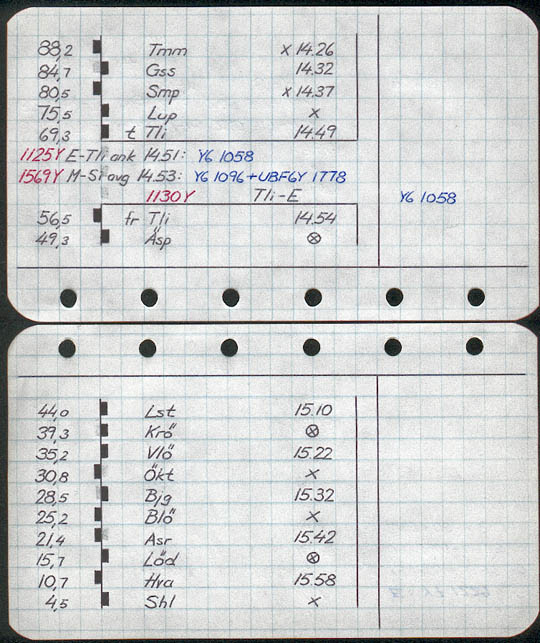 88,2 Tmm x 14.26
84,7 Gss 14.32
80,5 Smp x 14.37
75,5 Lup x
69,3 t Tli 14.49
1125Y E-Tli ank 14.51: Y6 1058
1569Y M-Si avg 14.53: Y6 1096+UBF6Y 1778
1130Y Tli-E Y6 1058
56,5 fr Tli 14.54
49,3 Äsp ⊗
44,0 Lst 15.10
39,3 Krö ⊗
35,2 Vlö 15.22
30,8 Ökt x
28,5 Bjg 15.32
25,2 Blö x
21,4 Asr 15.42
15,7 Löd ⊗
10,7 Hva 15.58
4,5 Shl x